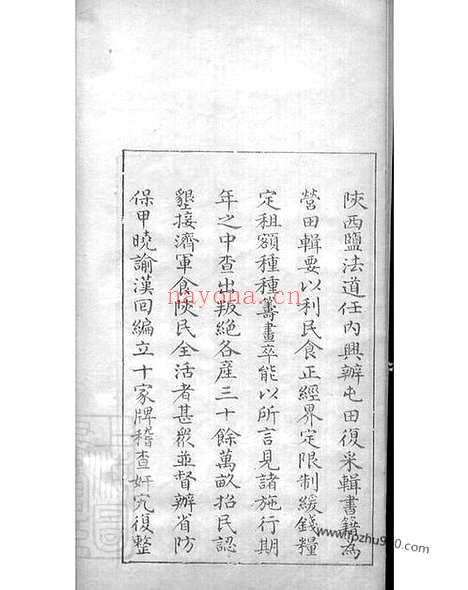 陝西鹽法道任內興辦屯田復采輯書籍為
營田輯要以利民食正經界定限制緩錢糧
定租額種種籌畫卒能以所言見諸施行期
年之中查出叛絕各產三十餘萬畝招民認
墾接濟軍食陝民全活者甚衆並督辦省防
保甲曉諭漢回編立十家牌稽查奸宄復整
nayona.cn
www.fozhu920.com